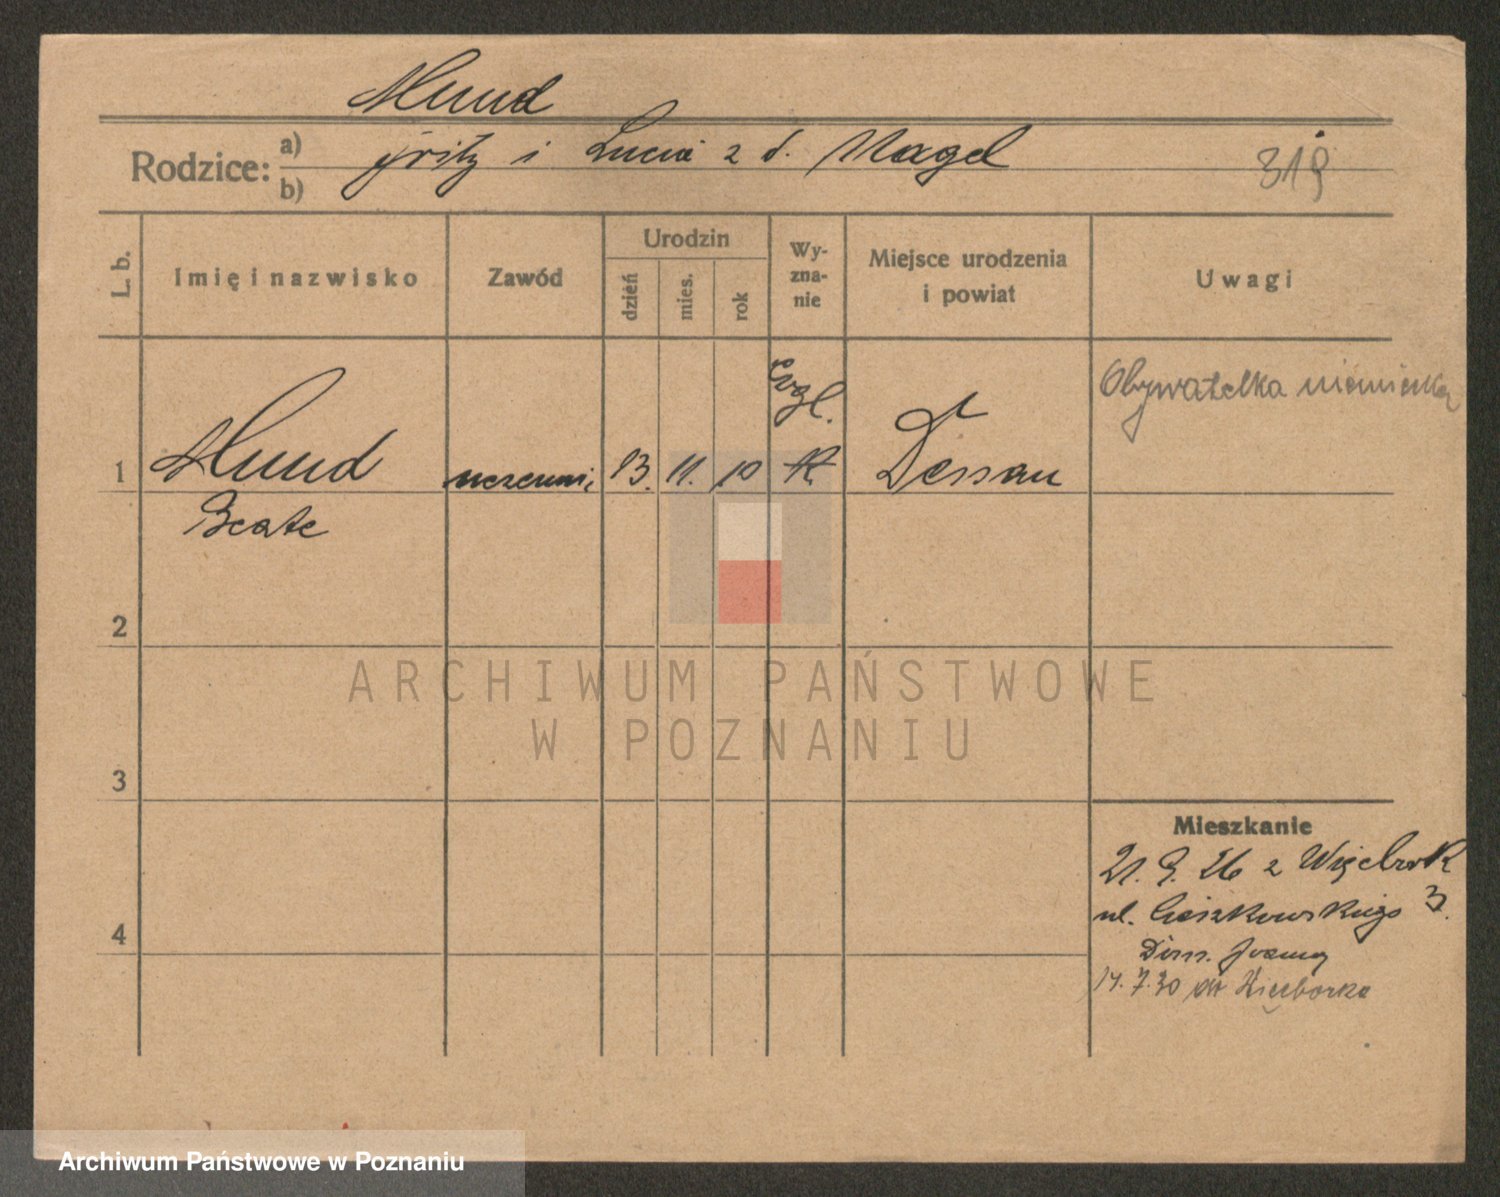 Mund
Rodzice: a) Fritz i Lucia z d. Nagel
b)
319
L. b.
Imię i nazwisko
Zawód
Urodzin
dzień
mies.
rok
Wy-
zna-
nie
Miejsce urodzenia
i powiat
Uwagi
1
Mund
Beate
uczenni
13.
11.
10
evgl.
K
Dessau
Obywatelka niemiecka
2
3
4
Mieszkanie
21. 9. 26 z Więcbork
ul. Cieszkowskiego 3.
14. 7. 30 do Więcborka
ARCHIWUM PAŃSTWOWE
W POZNANIU
Archiwum Państwowe w Poznaniu